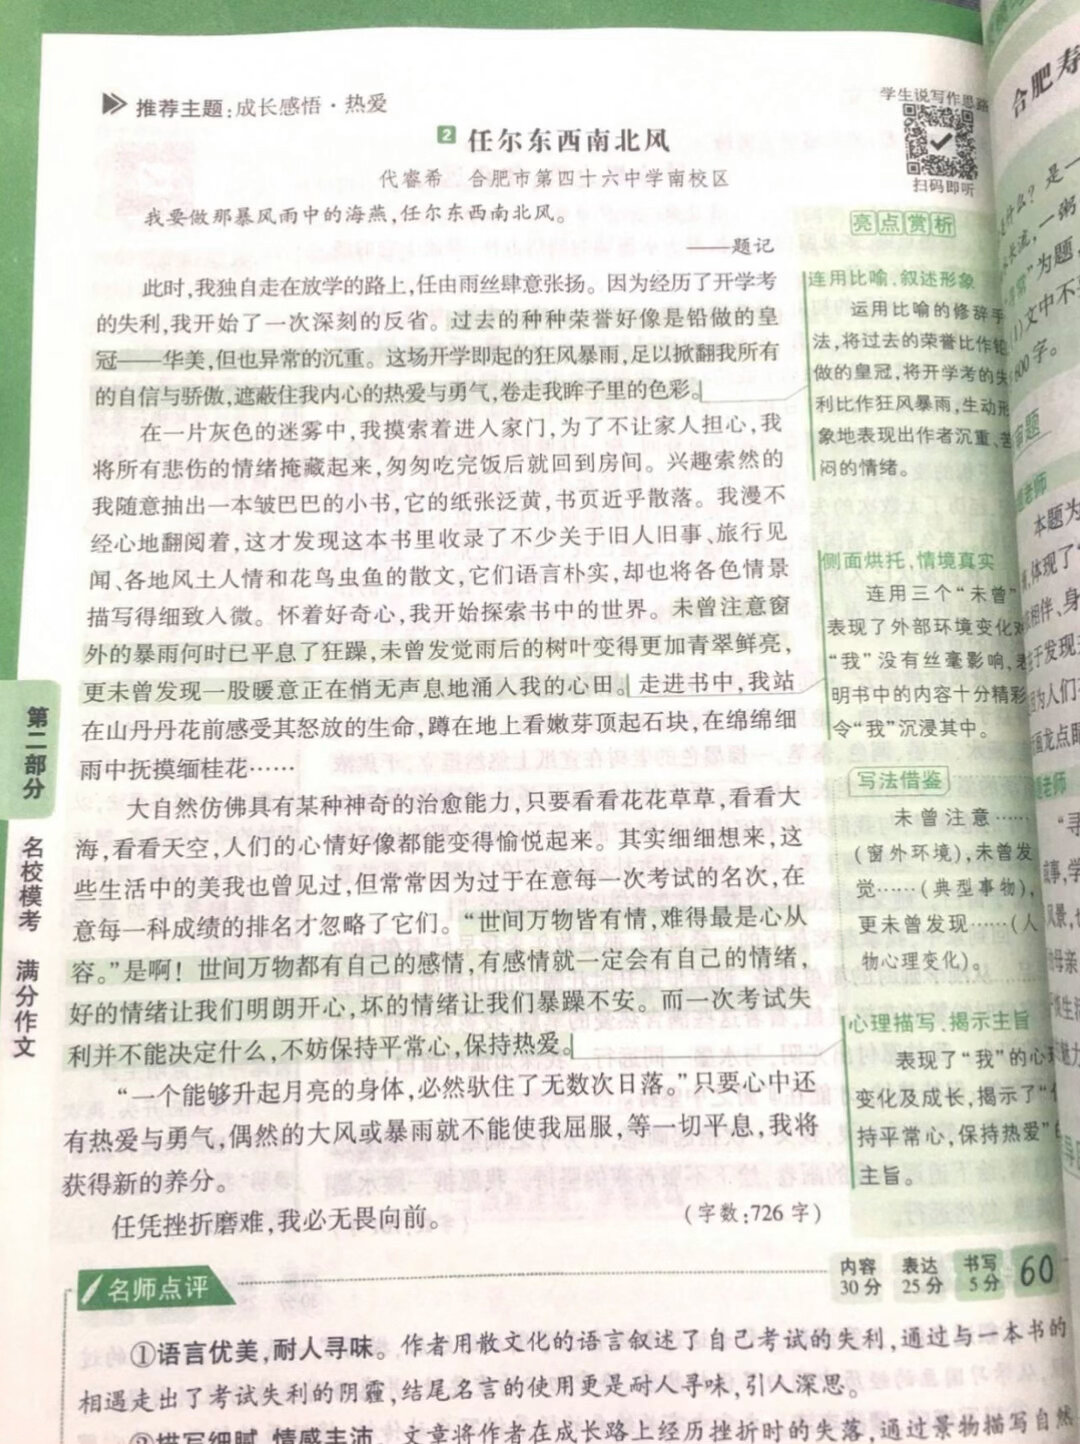 推荐主题:成长感悟·热爱
2 任尔东西南北风
代睿希 合肥市第四十六中学南校区
我要做那暴风雨中的海燕,任尔东西南北风。
——题记
此时,我独自走在放学的路上,任由雨丝肆意张扬。因为经历了开学考
的失利,我开始了一次深刻的反省。过去的种种荣誉好像是铅做的皇
冠——华美,但也异常的沉重。这场开学即起的狂风暴雨,足以掀翻我所有
的自信与骄傲,遮蔽住我内心的热爱与勇气,卷走我眸子里的色彩。
在一片灰色的迷雾中,我摸索着进入家门,为了不让家人担心,我
将所有悲伤的情绪掩藏起来,匆匆吃完饭后就回到房间。兴趣索然的
我随意抽出一本皱巴巴的小书,它的纸张泛黄,书页近乎散落。我漫不
经心地翻阅着,这才发现这本书里收录了不少关于旧人旧事、旅行见
闻、各地风土人情和花鸟虫鱼的散文,它们语言朴实,却也将各色情景
描写得细致入微。怀着好奇心,我开始探索书中的世界。未曾注意窗
外的暴雨何时已平息了狂躁,未曾发觉雨后的树叶变得更加青翠鲜亮,
更未曾发现一股暖意正在悄无声息地涌入我的心田。走进书中,我站
在山丹丹花前感受其怒放的生命,蹲在地上看嫩芽顶起石块,在绵绵细
雨中抚摸缅桂花……
大自然仿佛具有某种神奇的治愈能力,只要看看花花草草,看看大
海,看看天空,人们的心情好像都能变得愉悦起来。其实细细想来,这
些生活中的美我也曾见过,但常常因为过于在意每一次考试的名次,在
意每一科成绩的排名才忽略了它们。“世间万物皆有情,难得最是心从
容。”是啊!世间万物都有自己的感情,有感情就一定会有自己的情绪,
好的情绪让我们明朗开心,坏的情绪让我们暴躁不安。而一次考试失
利并不能决定什么,不妨保持平常心,保持热爱。
“一个能够升起月亮的身体,必然驮住了无数次日落。”只要心中还
有热爱与勇气,偶然的大风或暴雨就不能使我屈服,等一切平息,我将
获得新的养分。
任凭挫折磨难,我必无畏向前。
(字数:726字)
学生说写作思路
扫码即听
亮点赏析
连用比喻,叙述形象
运用比喻的修辞手
法,将过去的荣誉比作铅
做的皇冠,将开学考的失
利比作狂风暴雨,生动形
象地表现出作者沉重、苦
闷的情绪。
侧面烘托,情境真实
连用三个“未曾”
表现了外部环境变化对
“我”没有丝毫影响,表
明书中的内容十分精彩
令“我”沉浸其中。
写法借鉴
未曾注意……
(窗外环境),未曾发
觉……(典型事物),
更未曾发现……(人
物心理变化)。
心理描写,揭示主旨
表现了“我”的心
变化及成长,揭示了“
持平常心,保持热爱”
主旨。
第二部分
名校模考 满分作文
名师点评
内容 30分
表达 25分
书写 5分
60
①语言优美,耐人寻味。作者用散文化的语言叙述了自己考试的失利,通过与一本书的
相遇走出了考试失利的阴霾,结尾名言的使用更是耐人寻味,引人深思。
②描写细腻,情感丰沛。文章将作者在成长路上经历挫折时的失落,通过景物描写自然
合肥寿
什么?是一
水流,一粥
”为题,
(1)文中不
600字。
审题
老师
本题为
体现了“
相伴、身
于发现
因为人们
画龙点
老师
“寻
故事,学
风景,
母亲